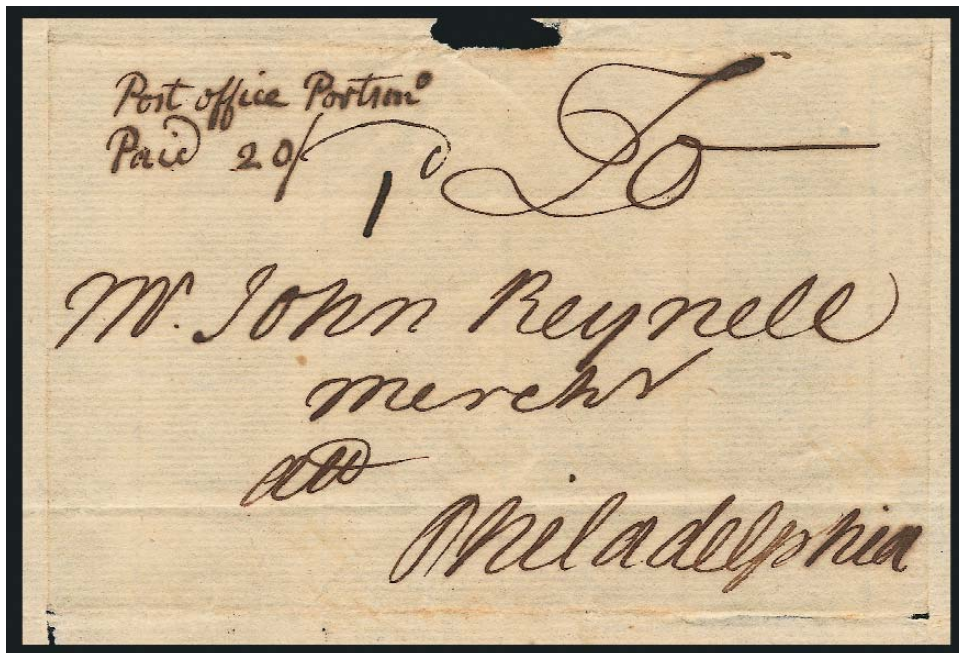 Post office Portsmo
Paid 20/
1 To
Mr. John Reynell
Mercht
att
Philadelphia